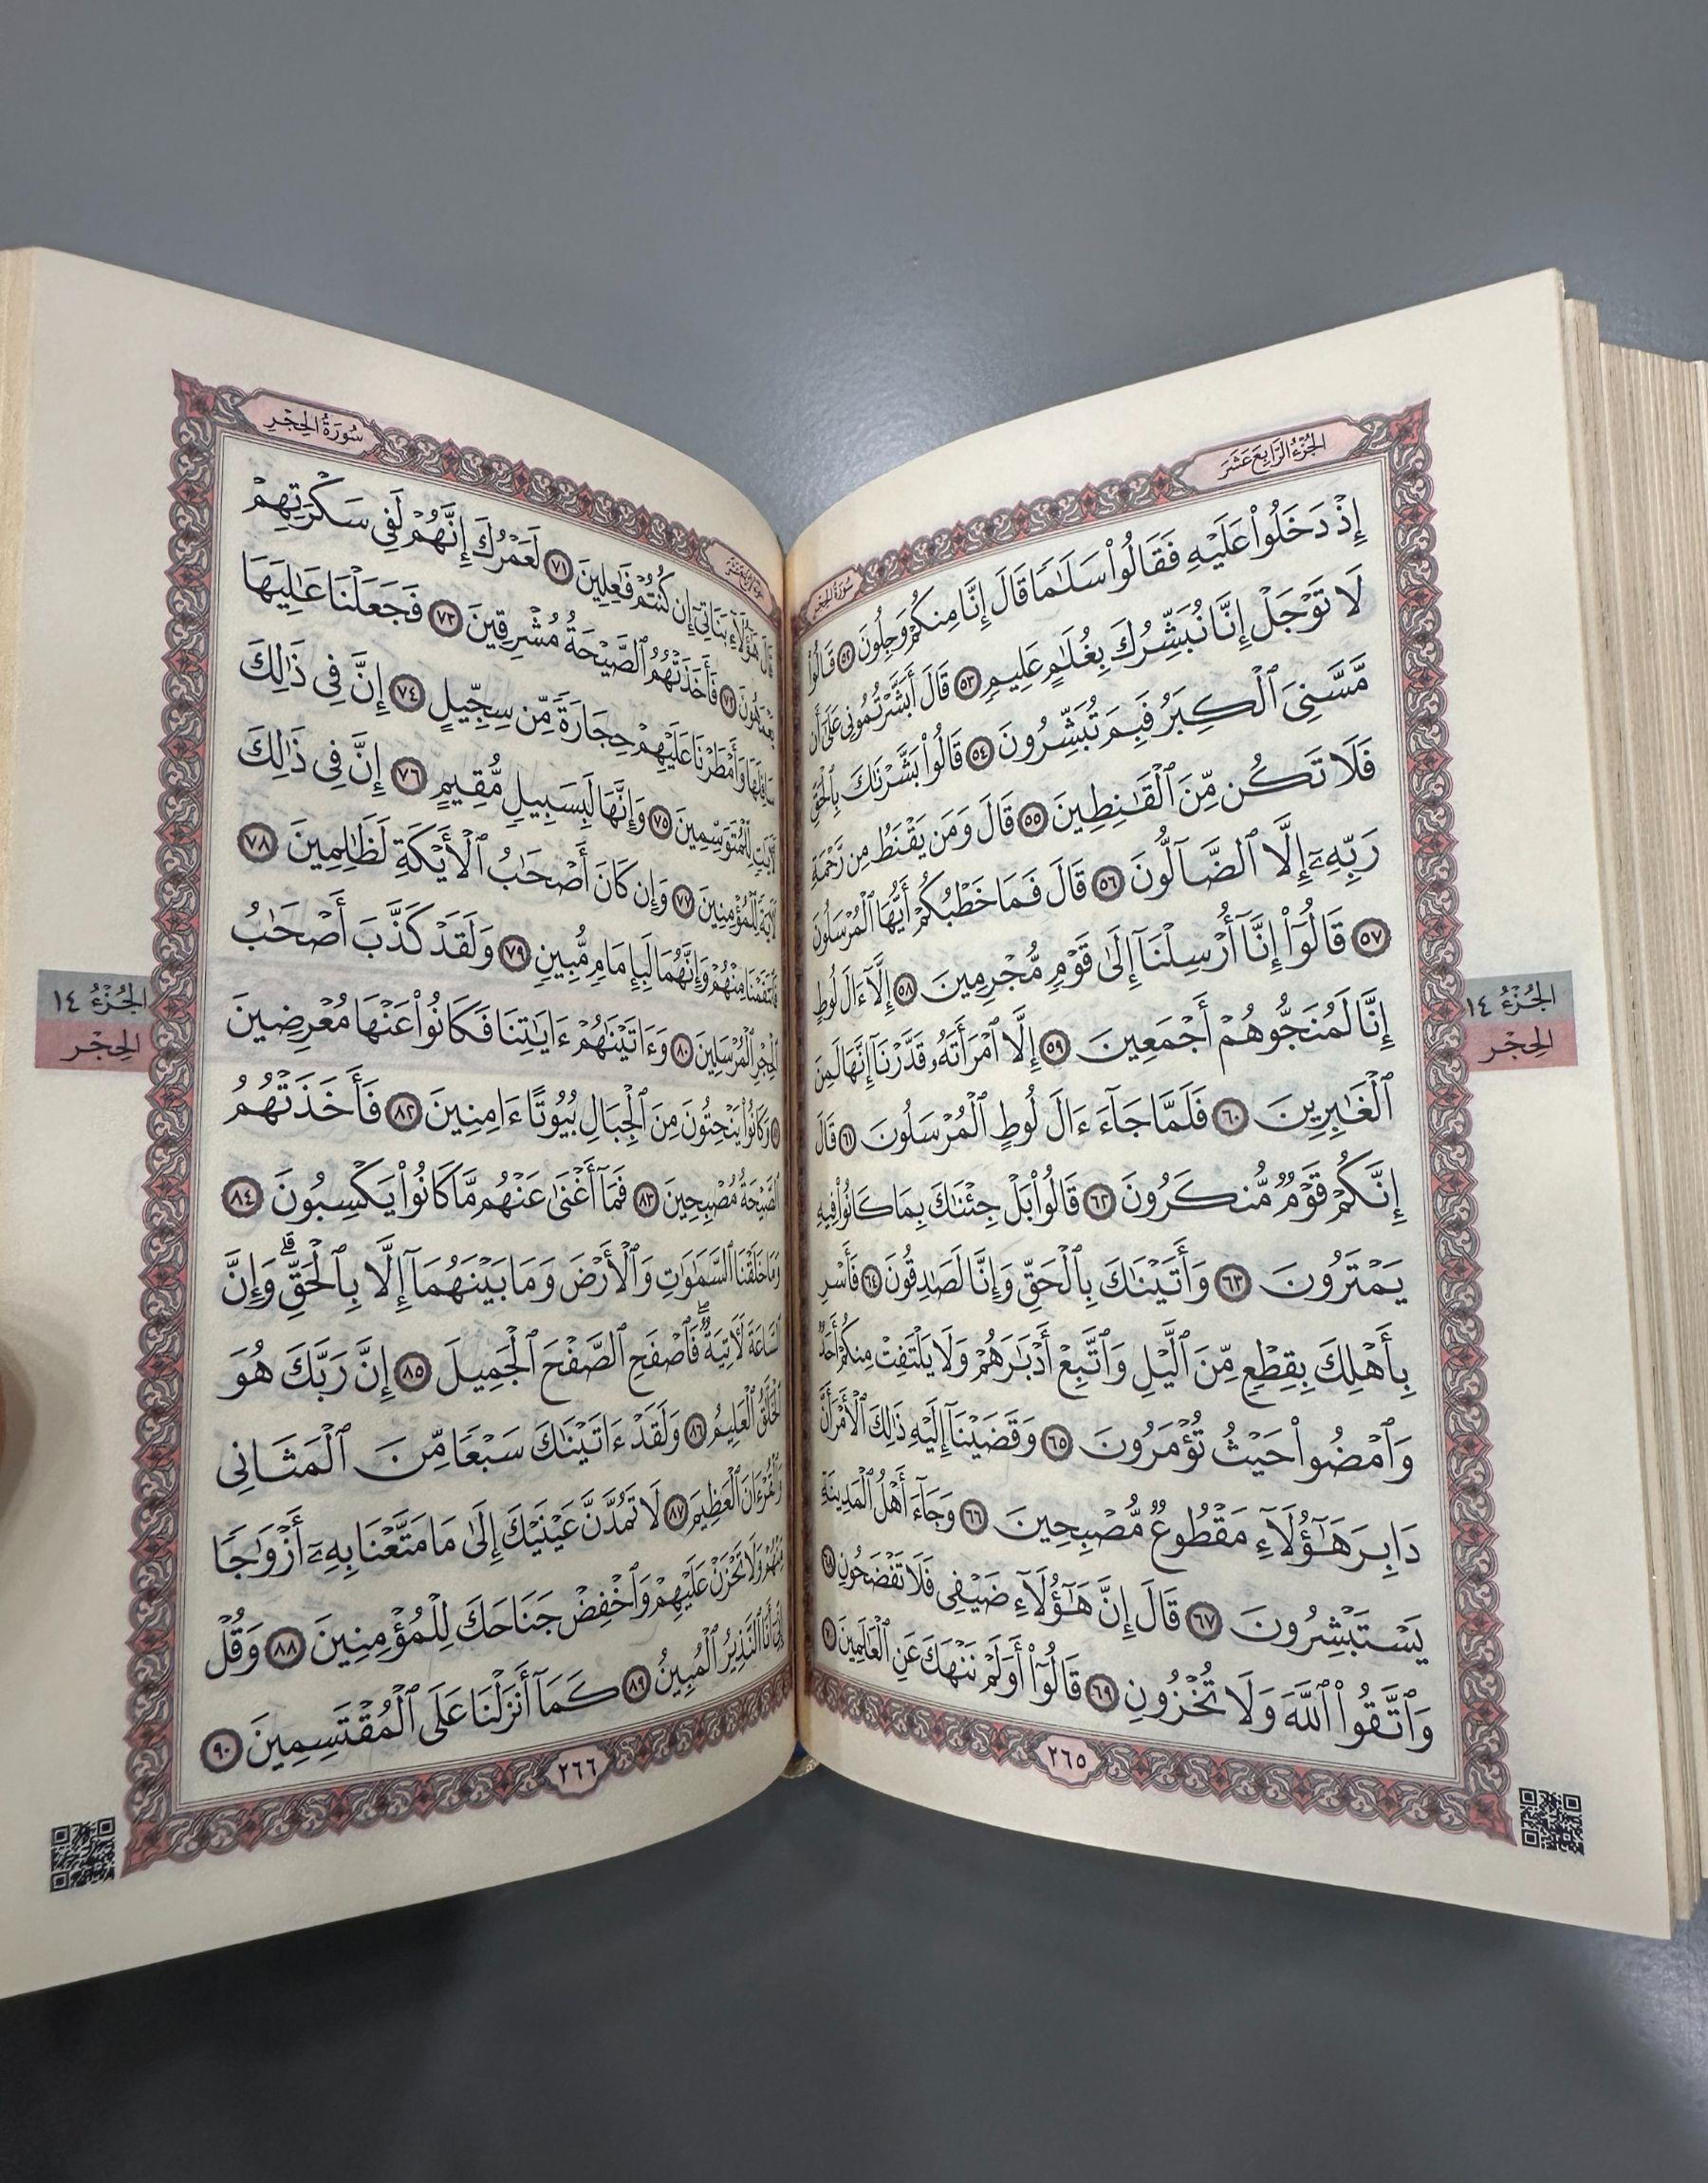 الجُزْءُ الرَّابِعَ عَشَرَ
سُورَةُ الحِجْرِ
إِذْ دَخَلُوا۟ عَلَيْهِ فَقَالُوا۟ سَلَٰمًا قَالَ إِنَّا مِنكُمْ وَجِلُونَ ٥٢ قَالُوا۟
لَا تَوْجَلْ إِنَّا نُبَشِّرُكَ بِغُلَٰمٍ عَلِيمٍ ٥٣ قَالَ أَبَشَّرْتُمُونِى عَلَىٰٓ أَن
مَّسَّنِىَ ٱلْكِبَرُ فَبِمَ تُبَشِّرُونَ ٥٤ قَالُوا۟ بَشَّرْنَٰكَ بِٱلْحَقِّ
فَلَا تَكُن مِّنَ ٱلْقَٰنِطِينَ ٥٥ قَالَ وَمَن يَقْنَطُ مِن رَّحْمَةِ
رَبِّهِۦٓ إِلَّا ٱلضَّآلُّونَ ٥٦ قَالَ فَمَا خَطْبُكُمْ أَيُّهَا ٱلْمُرْسَلُونَ
٥٧ قَالُوٓا۟ إِنَّآ أُرْسِلْنَآ إِلَىٰ قَوْمٍ مُّجْرِمِينَ ٥٨ إِلَّآ ءَالَ لُوطٍ
إِنَّا لَمُنَجُّوهُمْ أَجْمَعِينَ ٥٩ إِلَّا ٱمْرَأَتَهُۥ قَدَّرْنَآ إِنَّهَا لَمِنَ
ٱلْغَٰبِرِينَ ٦٠ فَلَمَّا جَآءَ ءَالَ لُوطٍ ٱلْمُرْسَلُونَ ٦١ قَالَ
إِنَّكُمْ قَوْمٌ مُّنكَرُونَ ٦٢ قَالُوا۟ بَلْ جِئْنَٰكَ بِمَا كَانُوا۟ فِيهِ
يَمْتَرُونَ ٦٣ وَأَتَيْنَٰكَ بِٱلْحَقِّ وَإِنَّا لَصَٰدِقُونَ ٦٤ فَأَسْرِ
بِأَهْلِكَ بِقِطْعٍ مِّنَ ٱلَّيْلِ وَٱتَّبِعْ أَدْبَٰرَهُمْ وَلَا يَلْتَفِتْ مِنكُمْ أَحَدٌ
وَٱمْضُوا۟ حَيْثُ تُؤْمَرُونَ ٦٥ وَقَضَيْنَآ إِلَيْهِ ذَٰلِكَ ٱلْأَمْرَ أَنَّ
دَابِرَ هَٰٓؤُلَآءِ مَقْطُوعٌ مُّصْبِحِينَ ٦٦ وَجَآءَ أَهْلُ ٱلْمَدِينَةِ
يَسْتَبْشِرُونَ ٦٧ قَالَ إِنَّ هَٰٓؤُلَآءِ ضَيْفِى فَلَا تَفْضَحُونِ ٦٨
وَٱتَّقُوا۟ ٱللَّهَ وَلَا تُخْزُونِ ٦٩ قَالُوٓا۟ أَوَلَمْ نَنْهَكَ عَنِ ٱلْعَٰلَمِينَ ٧٠
٢٦٥
الجُزْءُ ١٤
الحِجْر
سُورَةُ الحِجْرِ
قَالَ هَٰٓؤُلَآءِ بَنَاتِىٓ إِن كُنتُمْ فَٰعِلِينَ ٧١ لَعَمْرُكَ إِنَّهُمْ لَفِى سَكْرَتِهِمْ
يَعْمَهُونَ ٧٢ فَأَخَذَتْهُمُ ٱلصَّيْحَةُ مُشْرِقِينَ ٧٣ فَجَعَلْنَا عَٰلِيَهَا
سَافِلَهَا وَأَمْطَرْنَا عَلَيْهِمْ حِجَارَةً مِّن سِجِّيلٍ ٧٤ إِنَّ فِى ذَٰلِكَ
لَءَايَٰتٍ لِّلْمُتَوَسِّمِينَ ٧٥ وَإِنَّهَا لَبِسَبِيلٍ مُّقِيمٍ ٧٦ إِنَّ فِى ذَٰلِكَ
لَءَايَةً لِّلْمُؤْمِنِينَ ٧٧ وَإِن كَانَ أَصْحَٰبُ ٱلْأَيْكَةِ لَظَٰلِمِينَ ٧٨
فَٱنتَقَمْنَا مِنْهُمْ وَإِنَّهُمَا لَبِإِمَامٍ مُّبِينٍ ٧٩ وَلَقَدْ كَذَّبَ أَصْحَٰبُ
ٱلْحِجْرِ ٱلْمُرْسَلِينَ ٨٠ وَءَاتَيْنَٰهُمْ ءَايَٰتِنَا فَكَانُوا۟ عَنْهَا مُعْرِضِينَ
٨١ وَكَانُوا۟ يَنْحِتُونَ مِنَ ٱلْجِبَالِ بُيُوتًا ءَامِنِينَ ٨٢ فَأَخَذَتْهُمُ
ٱلصَّيْحَةُ مُصْبِحِينَ ٨٣ فَمَآ أَغْنَىٰ عَنْهُم مَّا كَانُوا۟ يَكْسِبُونَ ٨٤
وَمَا خَلَقْنَا ٱلسَّمَٰوَٰتِ وَٱلْأَرْضَ وَمَا بَيْنَهُمَآ إِلَّا بِٱلْحَقِّ ۗ وَإِنَّ
ٱلسَّاعَةَ لَءَاتِيَةٌ ۖ فَٱصْفَحِ ٱلصَّفْحَ ٱلْجَمِيلَ ٨٥ إِنَّ رَبَّكَ هُوَ
ٱلْخَلَّٰقُ ٱلْعَلِيمُ ٨٦ وَلَقَدْ ءَاتَيْنَٰكَ سَبْعًا مِّنَ ٱلْمَثَانِى
وَٱلْقُرْءَانَ ٱلْعَظِيمَ ٨٧ لَا تَمُدَّنَّ عَيْنَيْكَ إِلَىٰ مَا مَتَّعْنَا بِهِۦٓ أَزْوَٰجًا
مِّنْهُمْ وَلَا تَحْزَنْ عَلَيْهِمْ وَٱخْفِضْ جَنَاحَكَ لِلْمُؤْمِنِينَ ٨٨ وَقُلْ
إِنِّىٓ أَنَا ٱلنَّذِيرُ ٱلْمُبِينُ ٨٩ كَمَآ أَنزَلْنَا عَلَى ٱلْمُقْتَسِمِينَ ٩٠
٢٦٦
الجُزْءُ ١٤
الحِجْر